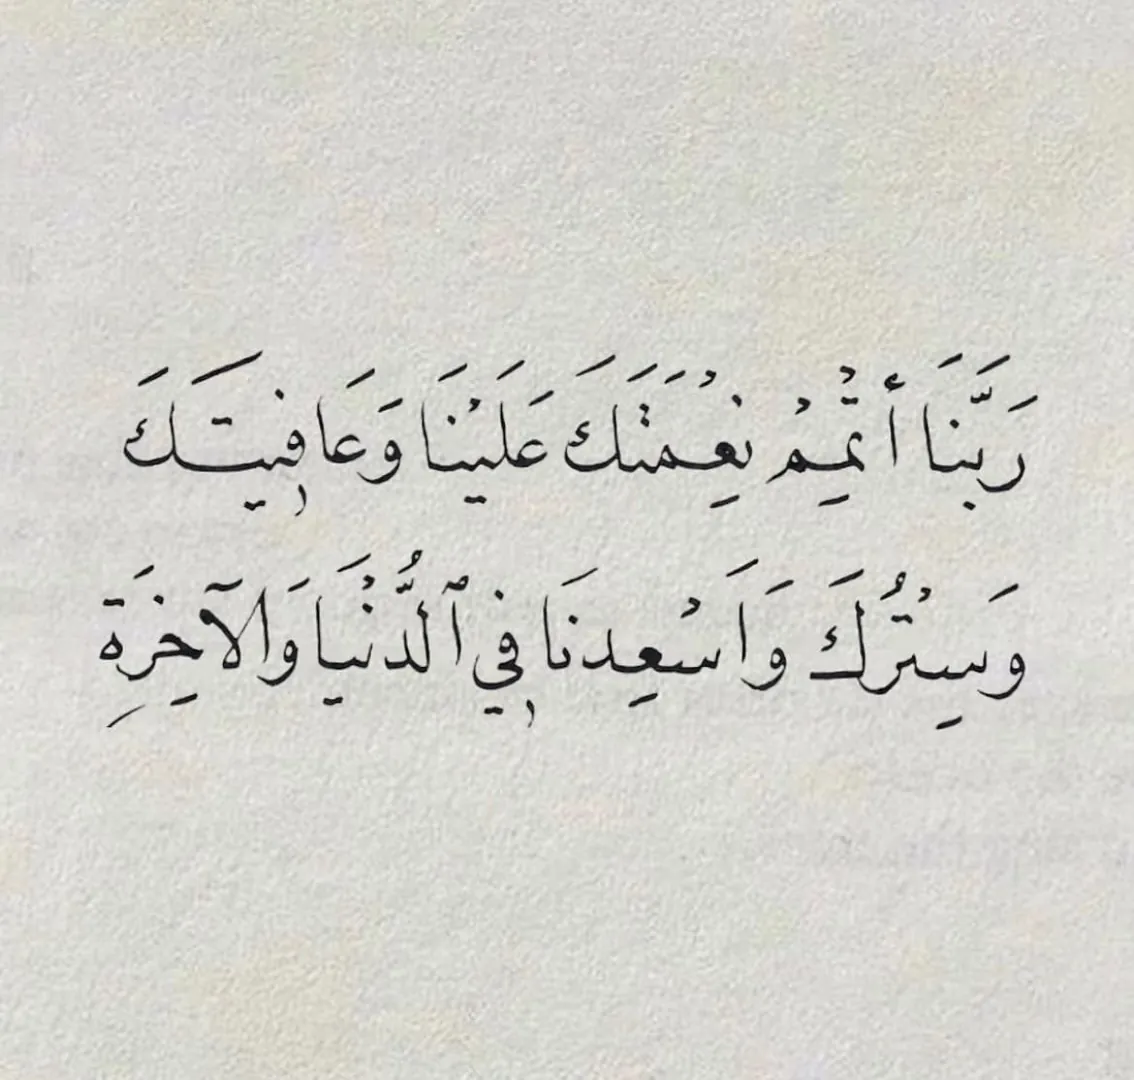 رَبَّنَا أَتْمِمْ نِعْمَتَكَ عَلَيْنَا وَعَافِيَتَكَ
وَسِتْرُكَ وَاَسْعِدنَا فِي ٱلدُّنْيَا وَالآخِرَةِ